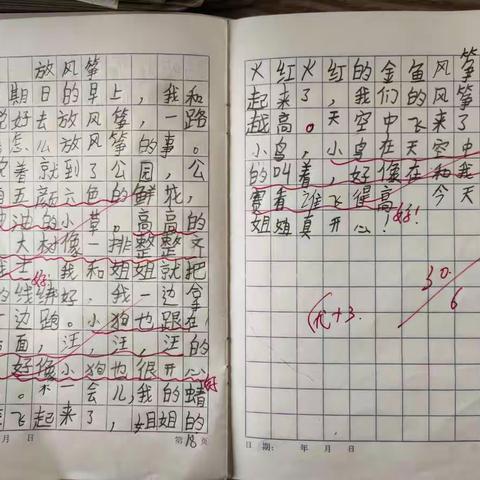 放风筝
期日的早上，我和
好去放风筝，一路
怎么放风筝的事。
着就到了公园，公
五颜六色的鲜花，
油的小草。高高的
大树像一排整整文
士。好！我和姐姐就把
的线绑好，我一边拿
一边跑。小狗也跟在
面，汪，汪，汪的
好像小狗也很开心
。不一会儿，我的蜻
飞起来了，姐姐的
月 日 第18页
火红火红的金鱼风筝
起来了，我们的风筝
越高。天空中飞来了
小鸟，小鸟在天空中
的叫着，好像在和我
赛看谁飞得高 今天
姐姐真开心！好！
30
6
优+3
日期： 年 月 日